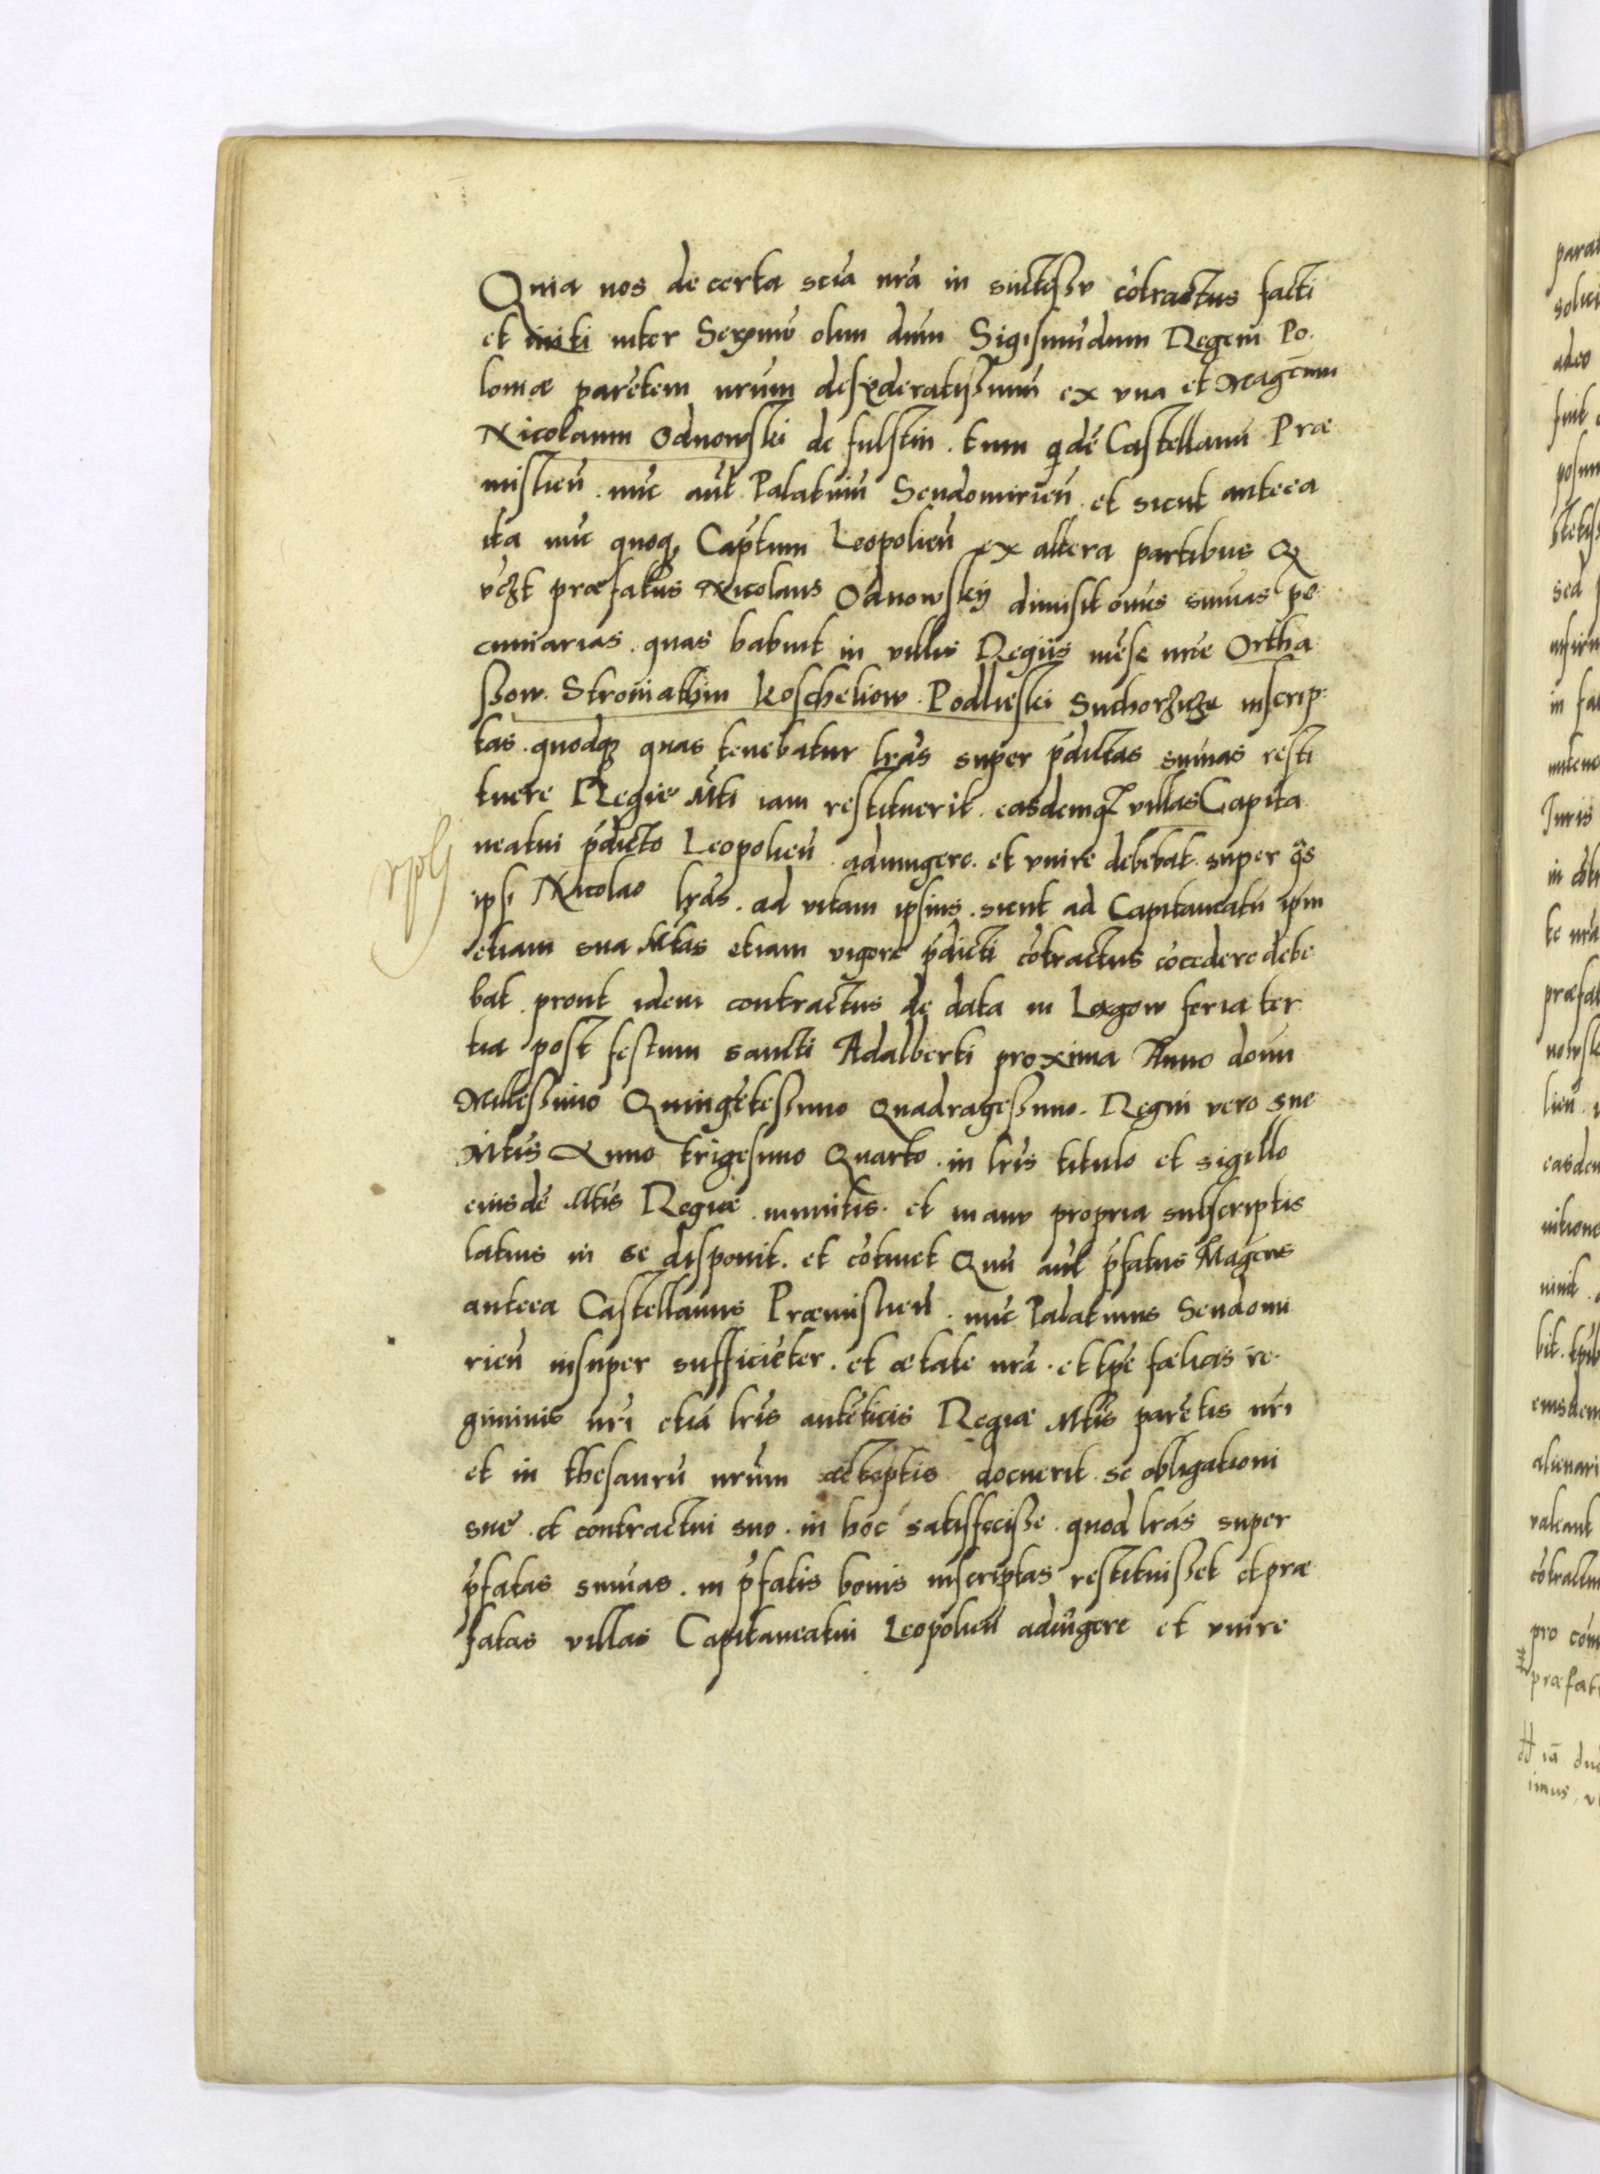 Quia nos de certa scia nra in côtractus facti
et initi inter olim dnm Sigismudum Regem Po-
loniæ parētem nrum desyderatissimū ex vna et Magcnm
Nicolaum Odnowski de fulstin . tum qdē Castellanū Præ
mislien̄ . nūc aūt Palatinū Sendomirien̄ . et sicut anteea
ita nūc quoq; Captum Leopolien̄ ex altera partibus Q
vcȝt præfatus Nicolaus Odnowskij dimisit ōnes sum̄as pe-
cuniarias . quas habuit in villis Regiis mēse nrē Ortha
ssow . Stroniathin Koscheliow . Podlieski inscrip-
tas . quodqȝ quas tenebatur lrās super pdictas sum̄as resti
tuere Regie Mti iam restituerit . easdemqȝ villas Capita
neatui pdicto Leopolien̄ . adiungere . et vnire debebat . super qs
ipsi Nicolao lrās . ad vitam ipsius . sicut ad Capitaneatū ipm
etiam sua Mtas etiam vigore pdicti cōtractus cōcedere debe
bat . prout idem contractus de data in feria ter
tia post festum sancti Adalberti proxima Anno domi
Millessimo Quingētessimo Quadragessimo . Regni vero sue
Mtis Anno trigesimo Quarto . in lris titulo et sigillo
eiusdē Mtis Regiæ . munitis . et manu propria subscriptis
latius in se disponit . et cōtinet Qui aūt pfatus Magcus
anteea Castellanus Præmislien̄ . nūc Palatinus Sendomi
rien̄ insuper sufficiēter . et ætate nrā . et tpe fælicis re-
giminis nri etiā lris autēticis Regiæ Mtis parētis nri
et in thesaurū nrum docuerit se obligationi
sue . et contractui suo . in hoc satisfecisse . quod lrās super
pfatas sum̄as . in pfatis bonis inscriptas restituisset et præ
fatas villas Capitaneatui Leopolien̄ adiūgere et vnire